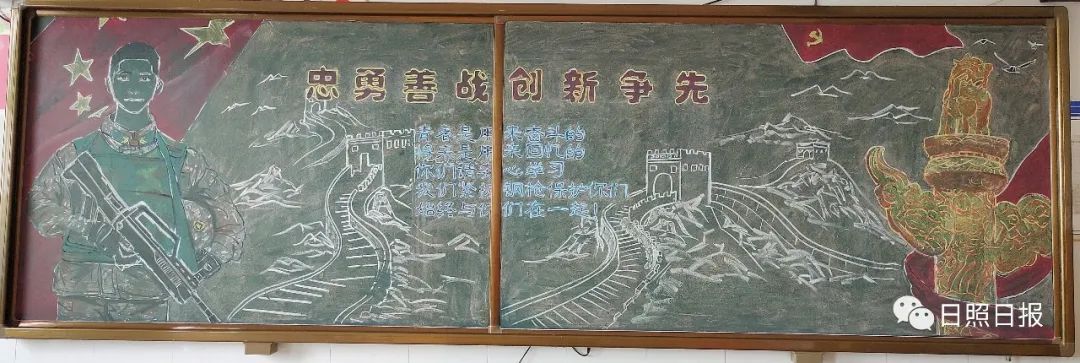 忠勇善战创新争先
青春是用来奋斗的
将来是用来回忆的
你们请安心学习
我们紧握钢枪保护你们
始终与你们在一起!
日照日报